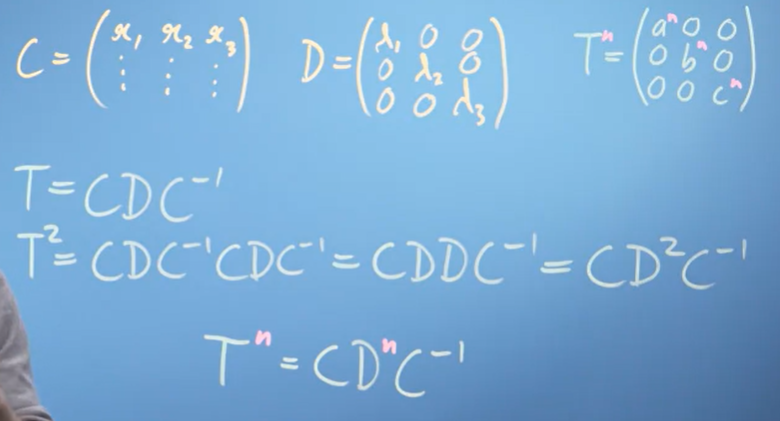 C = ( x₁ x₂ x₃ ⋮ ⋮ ⋮ ) D = ( λ₁ 0 0 0 λ₂ 0 0 0 λ₃ ) Tⁿ = ( aⁿ 0 0 0 bⁿ 0 0 0 cⁿ )
T = CDC⁻¹
T² = CDC⁻¹CDC⁻¹ = CDDC⁻¹ = CD²C⁻¹
Tⁿ = CDⁿC⁻¹